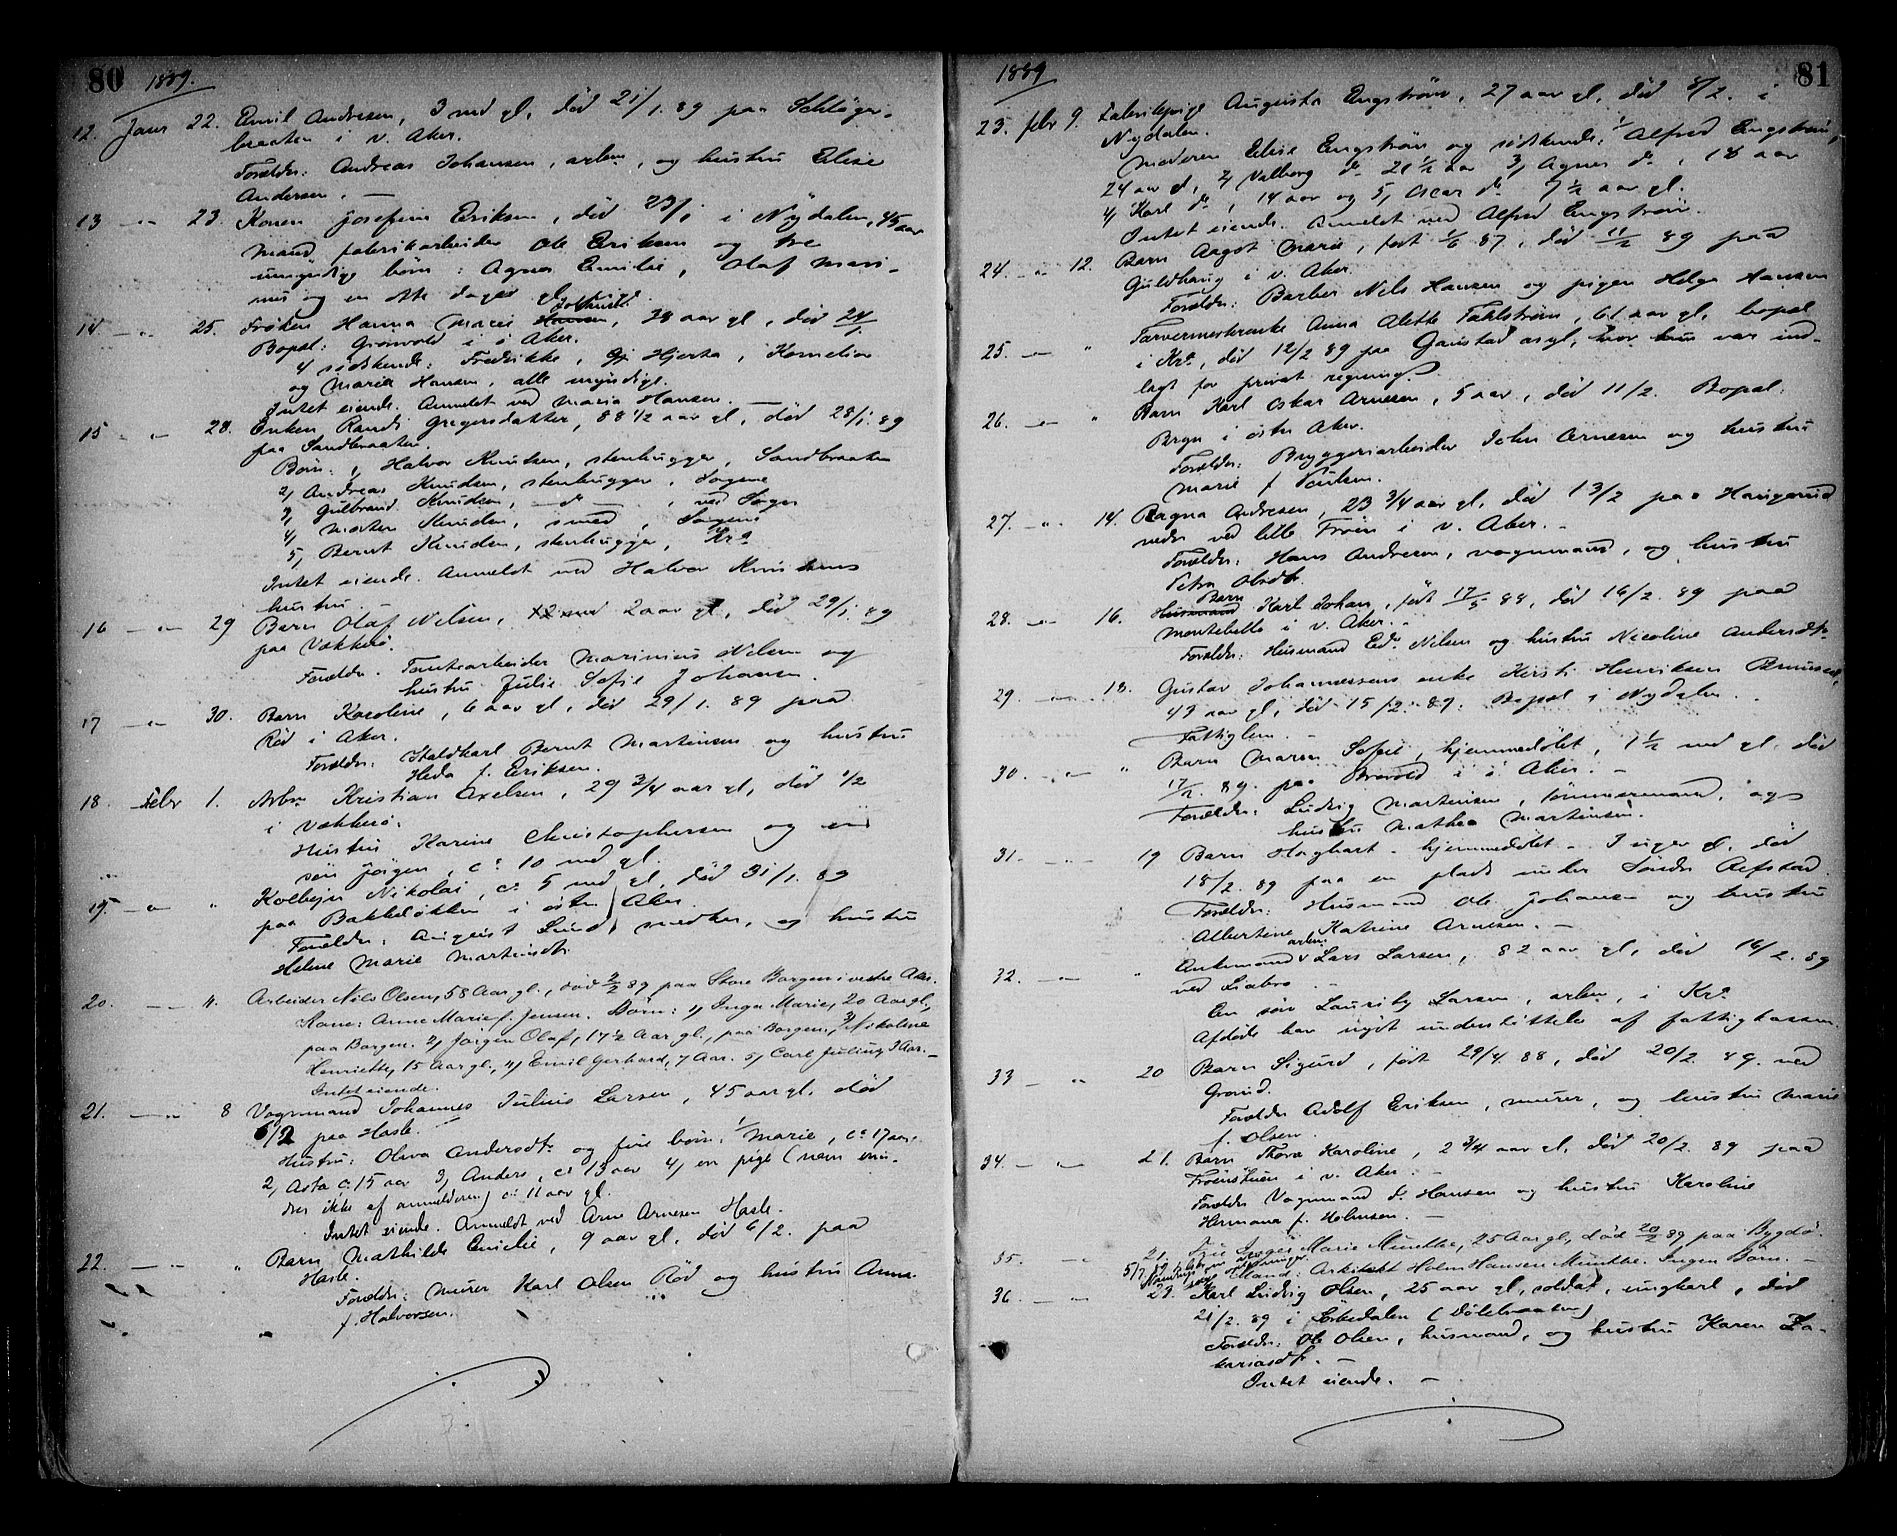 80 1889.
12. Janr 22. Emil Andresen, 3 md gl, død 21/1. 89 paa Schläger-
braaten i v. Aker.
Forældr: Andreas Johansen, arbm, og hustru Elise
Andersen. —
13 — " — 23. Konen Josefine Eriksen, død 23/1 i Nydalen, 45 aar
Mand fabrikarbeider Ole Eriksen og tre
umyndige børn: Agnes Emilie, Olaf Mari-
nius og en otte dages gl. pige.
14 — " — 25. Frøken Hanna Marie Hansen, 38 aar gl, død 24/1.
Bopæl: Grønvold i ø Aker.
4 sødskende: Fredrikke, Hjerta, Kornelia
og Maria Hansen, alle myndige.
Intet eiende. Anmeldt ved Maria Hansen.
15 — " — 28. Enken Randi Gregersdatter, 88 1/2 aar gl, død 28/1. 89
paa Sandbraaten.
Børn: 1, Halvor Knutsen, stenhugger, Sandbraaten
2, Andreas Knudsen, stenhugger, Sogene
3, Gulbrand Knudsen, — do — , ved Sogn
4, Morten Knudsen, smed, Sogene
5, Bernt Knudsen, stenhugger, Kra
Intet eiende. Anmeldt ved Halvor Knudsens
hustru.
16 — " — 29 Barn Olaf Nilsen, 2 aar gl, død 29/1. 89
paa Vækkerø.
Forældr: Tomtearbeider Marinius Nilsen og
hustru Julie Sofie Johansen.
17 — " — 30. Barn Karoline, 6 aar gl, død 29/1. 89 paa
Rød i Aker.
Forældr: Staldkarl Bernt Martinsen og hustru
Heda f. Eriksen.
18 — Febr 1. Arbm Kristian Axelsen, 29 3/4 aar gl, død 1/2
i Vækkerø.
Hustru Karine Christophersen og en
søn Jørgen, ca 10 md gl.
19. — " — " Kolbejn Nikolai, ca 5 md gl, død 31/1. 89
paa Bakkeløkken i østre Aker.
Forældr: August Lund, snedker, og hustru
Helene Marie Martinsdtr.
20. — — 4. Arbeider Nils Olsen, 58 Aar gl., død 2/2 89 paa Store Borgen i vestre Aker.
Kone: Anne Marie f. Jensen. Børn: 1) Inga Marie, 20 Aar gl.,
paa Borgen. 2) Jørgen Olaf, 17 1/2 Aar gl., paa Borgen, 3) Nikoline
Henriette, 15 Aar gl., 4) Emil Gerhard, 7 Aar. 5) Carl Julius 3 Aar. —
Intet eiende.
21. — " — 8 Vognmand Johannes Julius Larsen, 45 aar gl, død
6/2 paa Hasle. —
Hustru: Olava Andersdtr og fire børn: 1/ Marie, ca 17 aar,
2, Asta ca 15 aar 3, Anders, ca 13 aar 4, en pige (navn erin-
dres ikke af anmelderen) ca 11 aar gl.
Intet eiende. Anmeldt ved Arne Arnesen Hasle.
22. — " — " Barn Mathilde Emilie, 9 aar gl, død 6/2. paa
Hasle.
Forældr: murer Karl Olsen Rød og hustru Anna
f. Halvorsen.
1889 81
23. febr 9. Fabrikpige Augusta Engstrøm, 27 aar gl, død 8/2. i
Nydalen.
Moderen Elise Engstrøm og sødskende: 1/ Alfred Engstrøm,
24 aar gl, 2/ Valborg do 21 1/2 aar 3, Agnes do, 18 aar
4, Karl do, 14 aar og 5, Oscar do 7 1/2 aar gl.
Intet eiende. Anmeldt ved Alfred Engstrøm.
24. — " — 12. Barn Aagot Marie, født 1/6 87, død 11/2 89 paa
Guldhaug i v. Aker.
Forældr: Barber Nils Hansen og pigen Helga Hansen
25. — " — " Farvermesterenke Anna Alette Fahlstrøm, 61 aar gl, bopæl
i Kra, død 12/2 89 paa Gaustad asyl, hvor hun var ind-
lagt for privat regning.
26. — " — " Barn Karl Oskar Arnesen, 5 aar, død 11/2. Bopæl
Bryn i østre Aker.
Forældr: Bryggeriarbeider John Arnesen og hustru
Marie f. Poulsen.
27. — " — 14. Ragna Andresen, 23 3/4 aar gl, død 13/2 paa Haugerud
nedr ved lille Frøen i v. Aker. —
Forældr: Hans Andresen, vognmand, og hustru
Petra Olsdtr.
28. — " — 16. Husmand Barn Karl Johan, født 17/5 88, død 14/2. 89 paa
Montebello i v. Aker. —
Forældr: Husmand Edv. Nilsen og hustru Nicoline Andersdtr.
29. — " — 18. Gustav Johannessens enke Kirsti Henriksen
43 aar gl, død 15/2. 89. Bopæl i Nydalen.
Fattiglem. —
30. — " — " Barn Maren Sofie, hjemmedøbt, 1 1/2 md gl. død
17/2. 89. paa Brovold i ø. Aker. —
Forældr: Ludvig Martinsen, tømmermand, og
hustru Mathea Martinsen.
31. — " — 19 Barn Haghart — hjemmedøbt — 3 uger gl. død
18/2. 89 paa en plads under Søndre Refstad.
Forældr: Husmand Ole Johansen og hustru
Albertine Katrine Arnesen. —
32. — " — " Enkemand arbm. Lars Larsen, 82 aar gl, død 16/2. 89
ved Liabro. —
En søn Lauritz Larsen, arbm, i Kra
Afdøde har nydt understøttelse af fattigkassen.
33 — " — 20 Barn Sigurd, født 29/4 88, død 20/2. 89. ved
Grorud.
Forældr Adolf Eriksen, murer, og hustru Marie
f. Olsen.
34. — " — 21. Barn Thora Karoline, 2 3/4 aar gl, død 20/2. 89 paa
Frøenstuen i v. Aker. —
Forældr Vognmand S. Hansen og hustru Karoline
Hermana f. Holmsen. —
35. — " — 21. Fru Marie Munthe, 25 Aar gl., død 20/2 89 paa Bygdø.
Mand: Arkitekt Holm Hansen Munthe. Ingen Børn. —
36 — " — 23. Karl Ludvig Olsen, 25 aar gl, soldat, ungkarl, død
21/2. 89 i Sørkedalen (Dølebraaten)
Forældr: Ole Olsen, husmand, og hustru Karen Za-
kariasdtr. —
Intet eiende. —